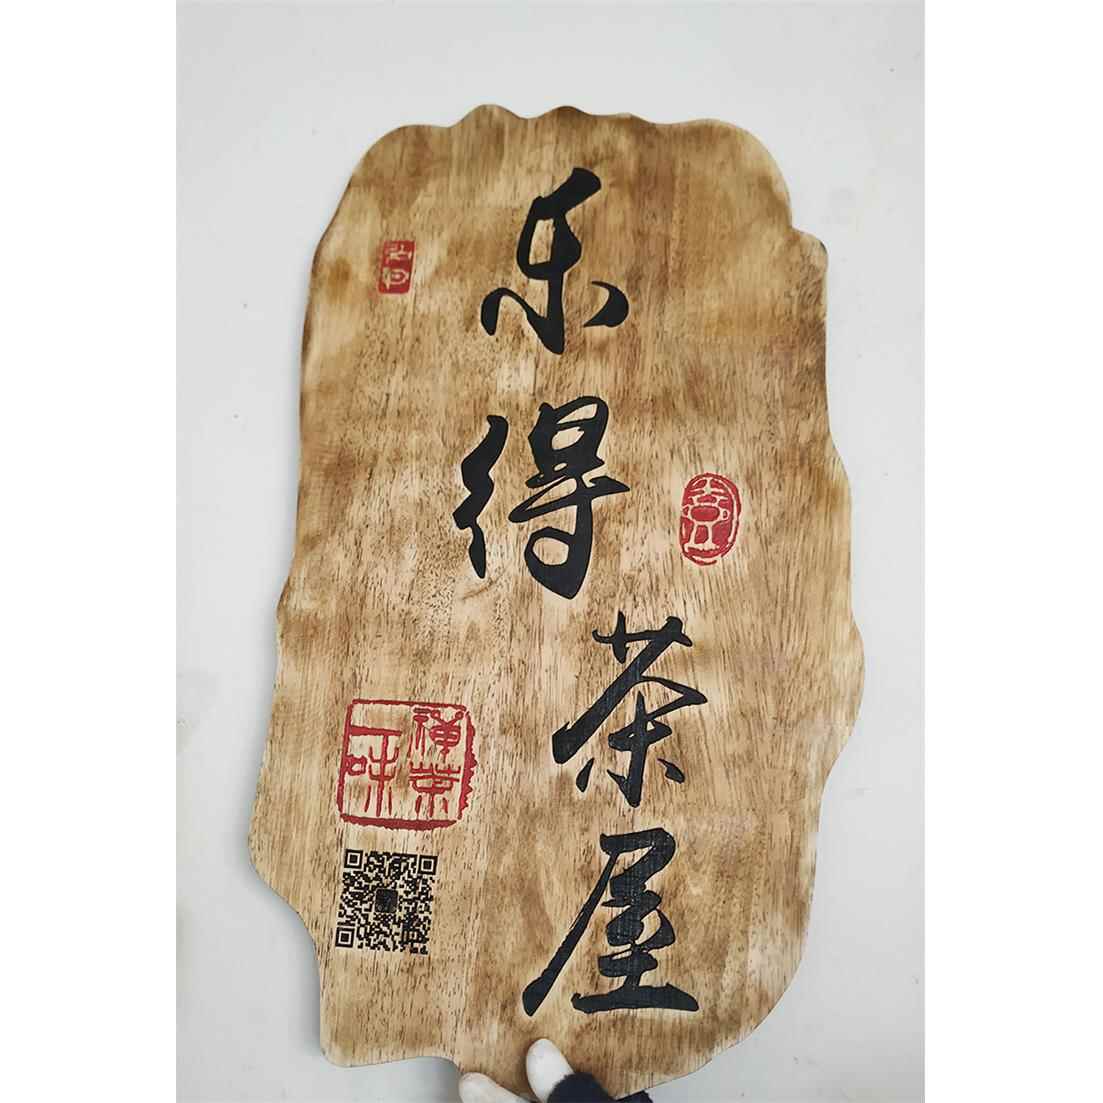 乐得茶屋
禅茶一味